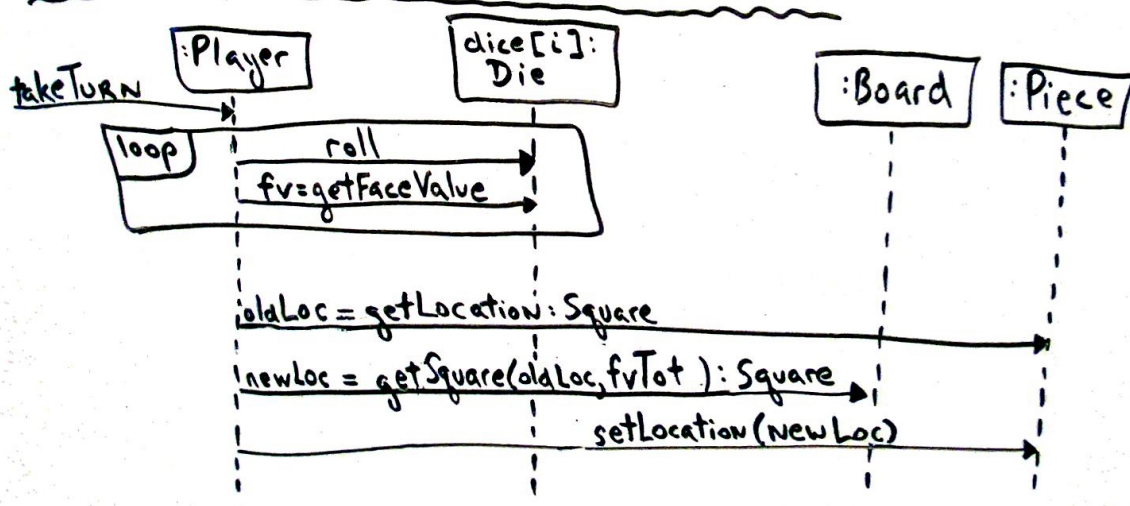 :Player
dice[i]:
Die
:Board
:Piece
takeTURN
loop
roll
fv=getFaceValue
oldLoc = getLocation: Square
newLoc = getSquare(oldLoc, fvTot ): Square
setLocation (NewLoc)